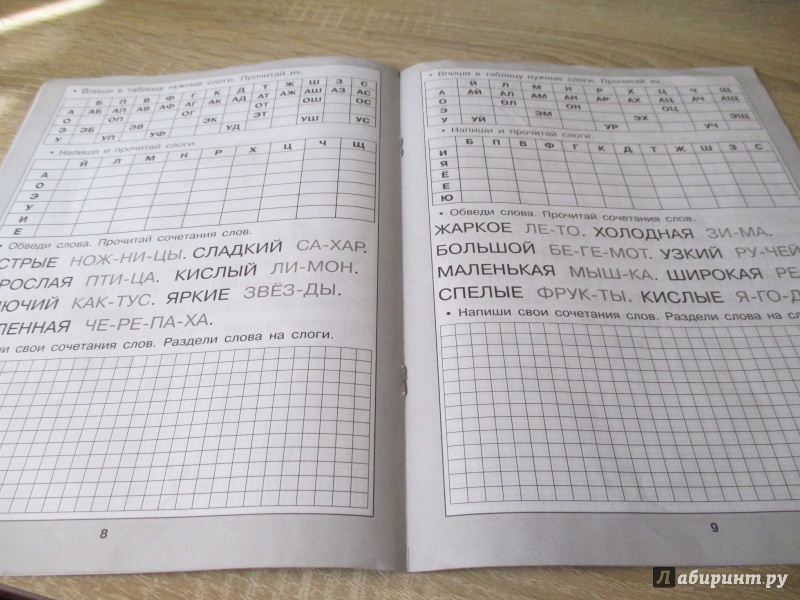 • Впиши в таблицу нужные слоги. Прочитай их.
Б П В Ф Г К Д Т Ж Ш З С
А АБ АП АВ АФ АГ АК АД АТ АЖ АШ АЗ АС
О ОП ОГ ОТ ОШ ОС
Э ЭБ ЭВ ЭК ЭТ
У УП УФ УД УШ УС
• Напиши и прочитай слоги.
Й Л М Н Р Х Ц Ч Щ
А
О
Э
У
И
Е
Обведи слова. Прочитай сочетания слов.
СТРЫЕ НОЖ-НИ-ЦЫ. СЛАДКИЙ СА-ХАР.
РОСЛАЯ ПТИ-ЦА. КИСЛЫЙ ЛИ-МОН.
ЮЧИЙ КАК-ТУС. ЯРКИЕ ЗВЁЗ-ДЫ.
ЛЕННАЯ ЧЕ-РЕ-ПА-ХА.
ши свои сочетания слов. Раздели слова на слоги.
8
• Впиши в таблицу нужные слоги. Прочитай их.
Й Л М Н Р Х Ц Ч Щ
А АЙ АЛ АМ АН АР АХ АЦ АЧ АЩ
О ОЛ ОН ОЦ
Э ЭМ ЭХ ЭЩ
У УЙ УР УЧ
• Напиши и прочитай слоги.
Б П В Ф Г К Д Т Ж Ш З С
И
Я
Ё
Е
Ю
• Обведи слова. Прочитай сочетания слов.
ЖАРКОЕ ЛЕ-ТО. ХОЛОДНАЯ ЗИ-МА.
БОЛЬШОЙ БЕ-ГЕ-МОТ. УЗКИЙ РУ-ЧЕЙ
МАЛЕНЬКАЯ МЫШ-КА. ШИРОКАЯ РЕ
СПЕЛЫЕ ФРУК-ТЫ. КИСЛЫЕ Я-ГО-Д
• Напиши свои сочетания слов. Раздели слова на сл
9
Лабиринт.ру